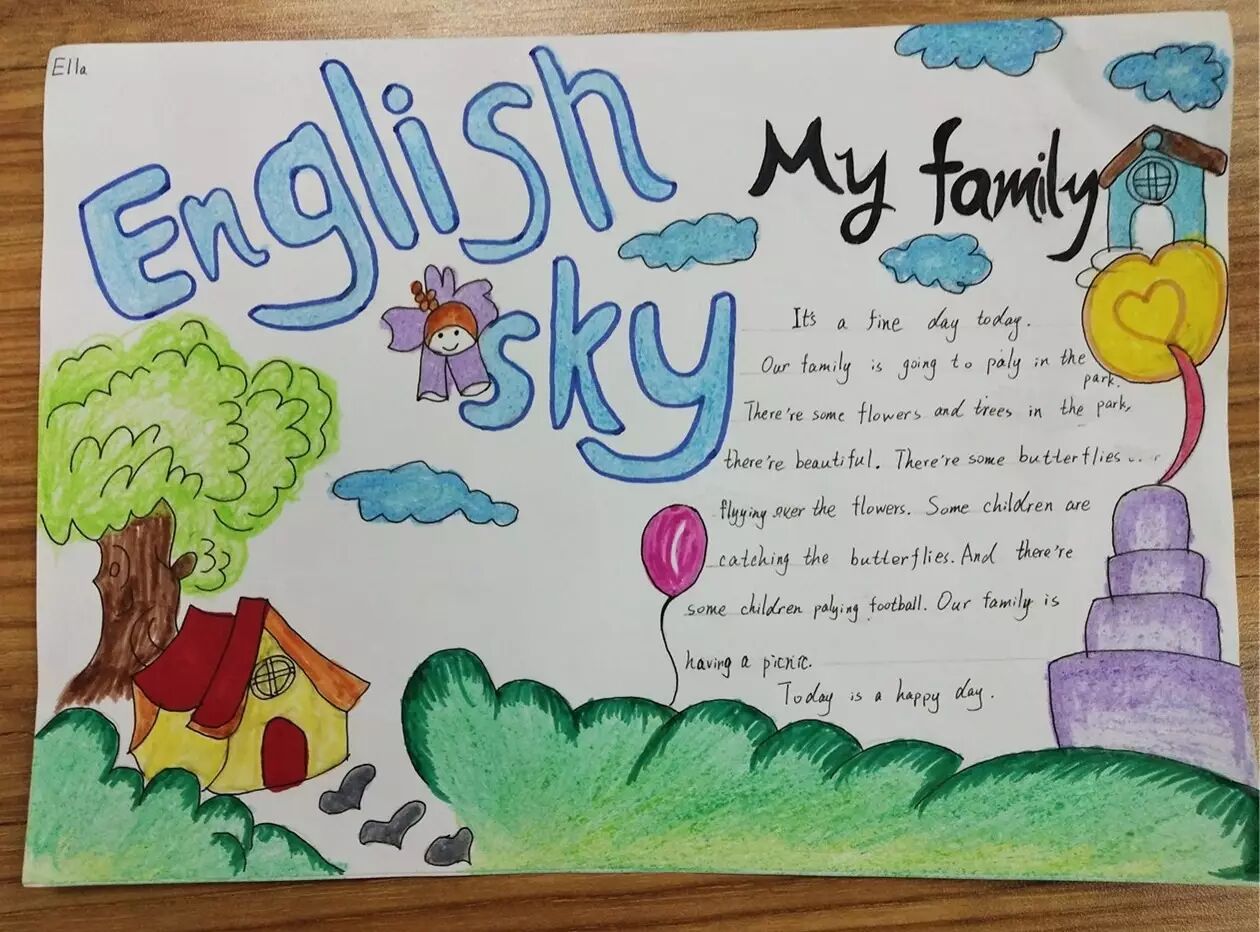 Ella
English
sky
My family
It's a fine day today.
Our family is going to paly in the
park.
There're some flowers and trees in the park,
there're beautiful. There're some butterflies...
flyying over the flowers. Some children are
catching the butterflies. And there're
some children palying football. Our family is
having a picnic.
Today is a happy day.